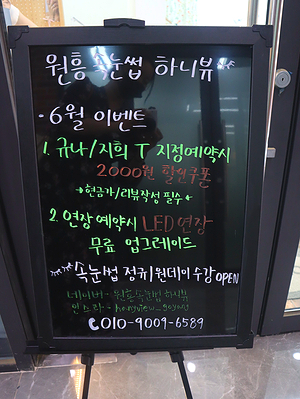 원흥속눈썹 하니뷰
·6월 이벤트
1. 규나/지희 T 지정예약시
2000원 할인쿠폰
현금가/리뷰작성 필수
2. 연장 예약시 LED 연장
무료 업그레이드
속눈썹 정규/원데이 수강 OPEN
네이버- 원흥속눈썹하니뷰
인스타-
010-9009-6589